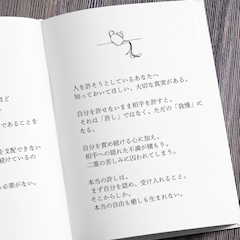 ほど
であることを
る。
支配できない
続けているの
必要がない。
人を許そうとしているあなたへ
知っておいてほしい、大切な真実がある。
自分を許せないまま相手を許すと、
それは「許し」ではなく、ただの「我慢」に
なる。
自分を責め続ける心に加え、
相手への隠れた不満が積もり、
二重の苦しみに囚われてしまう。
本当の許しは、
まず自分を認め、受け入れること。
そこからしか、
本当の自由も癒しも生まれない。